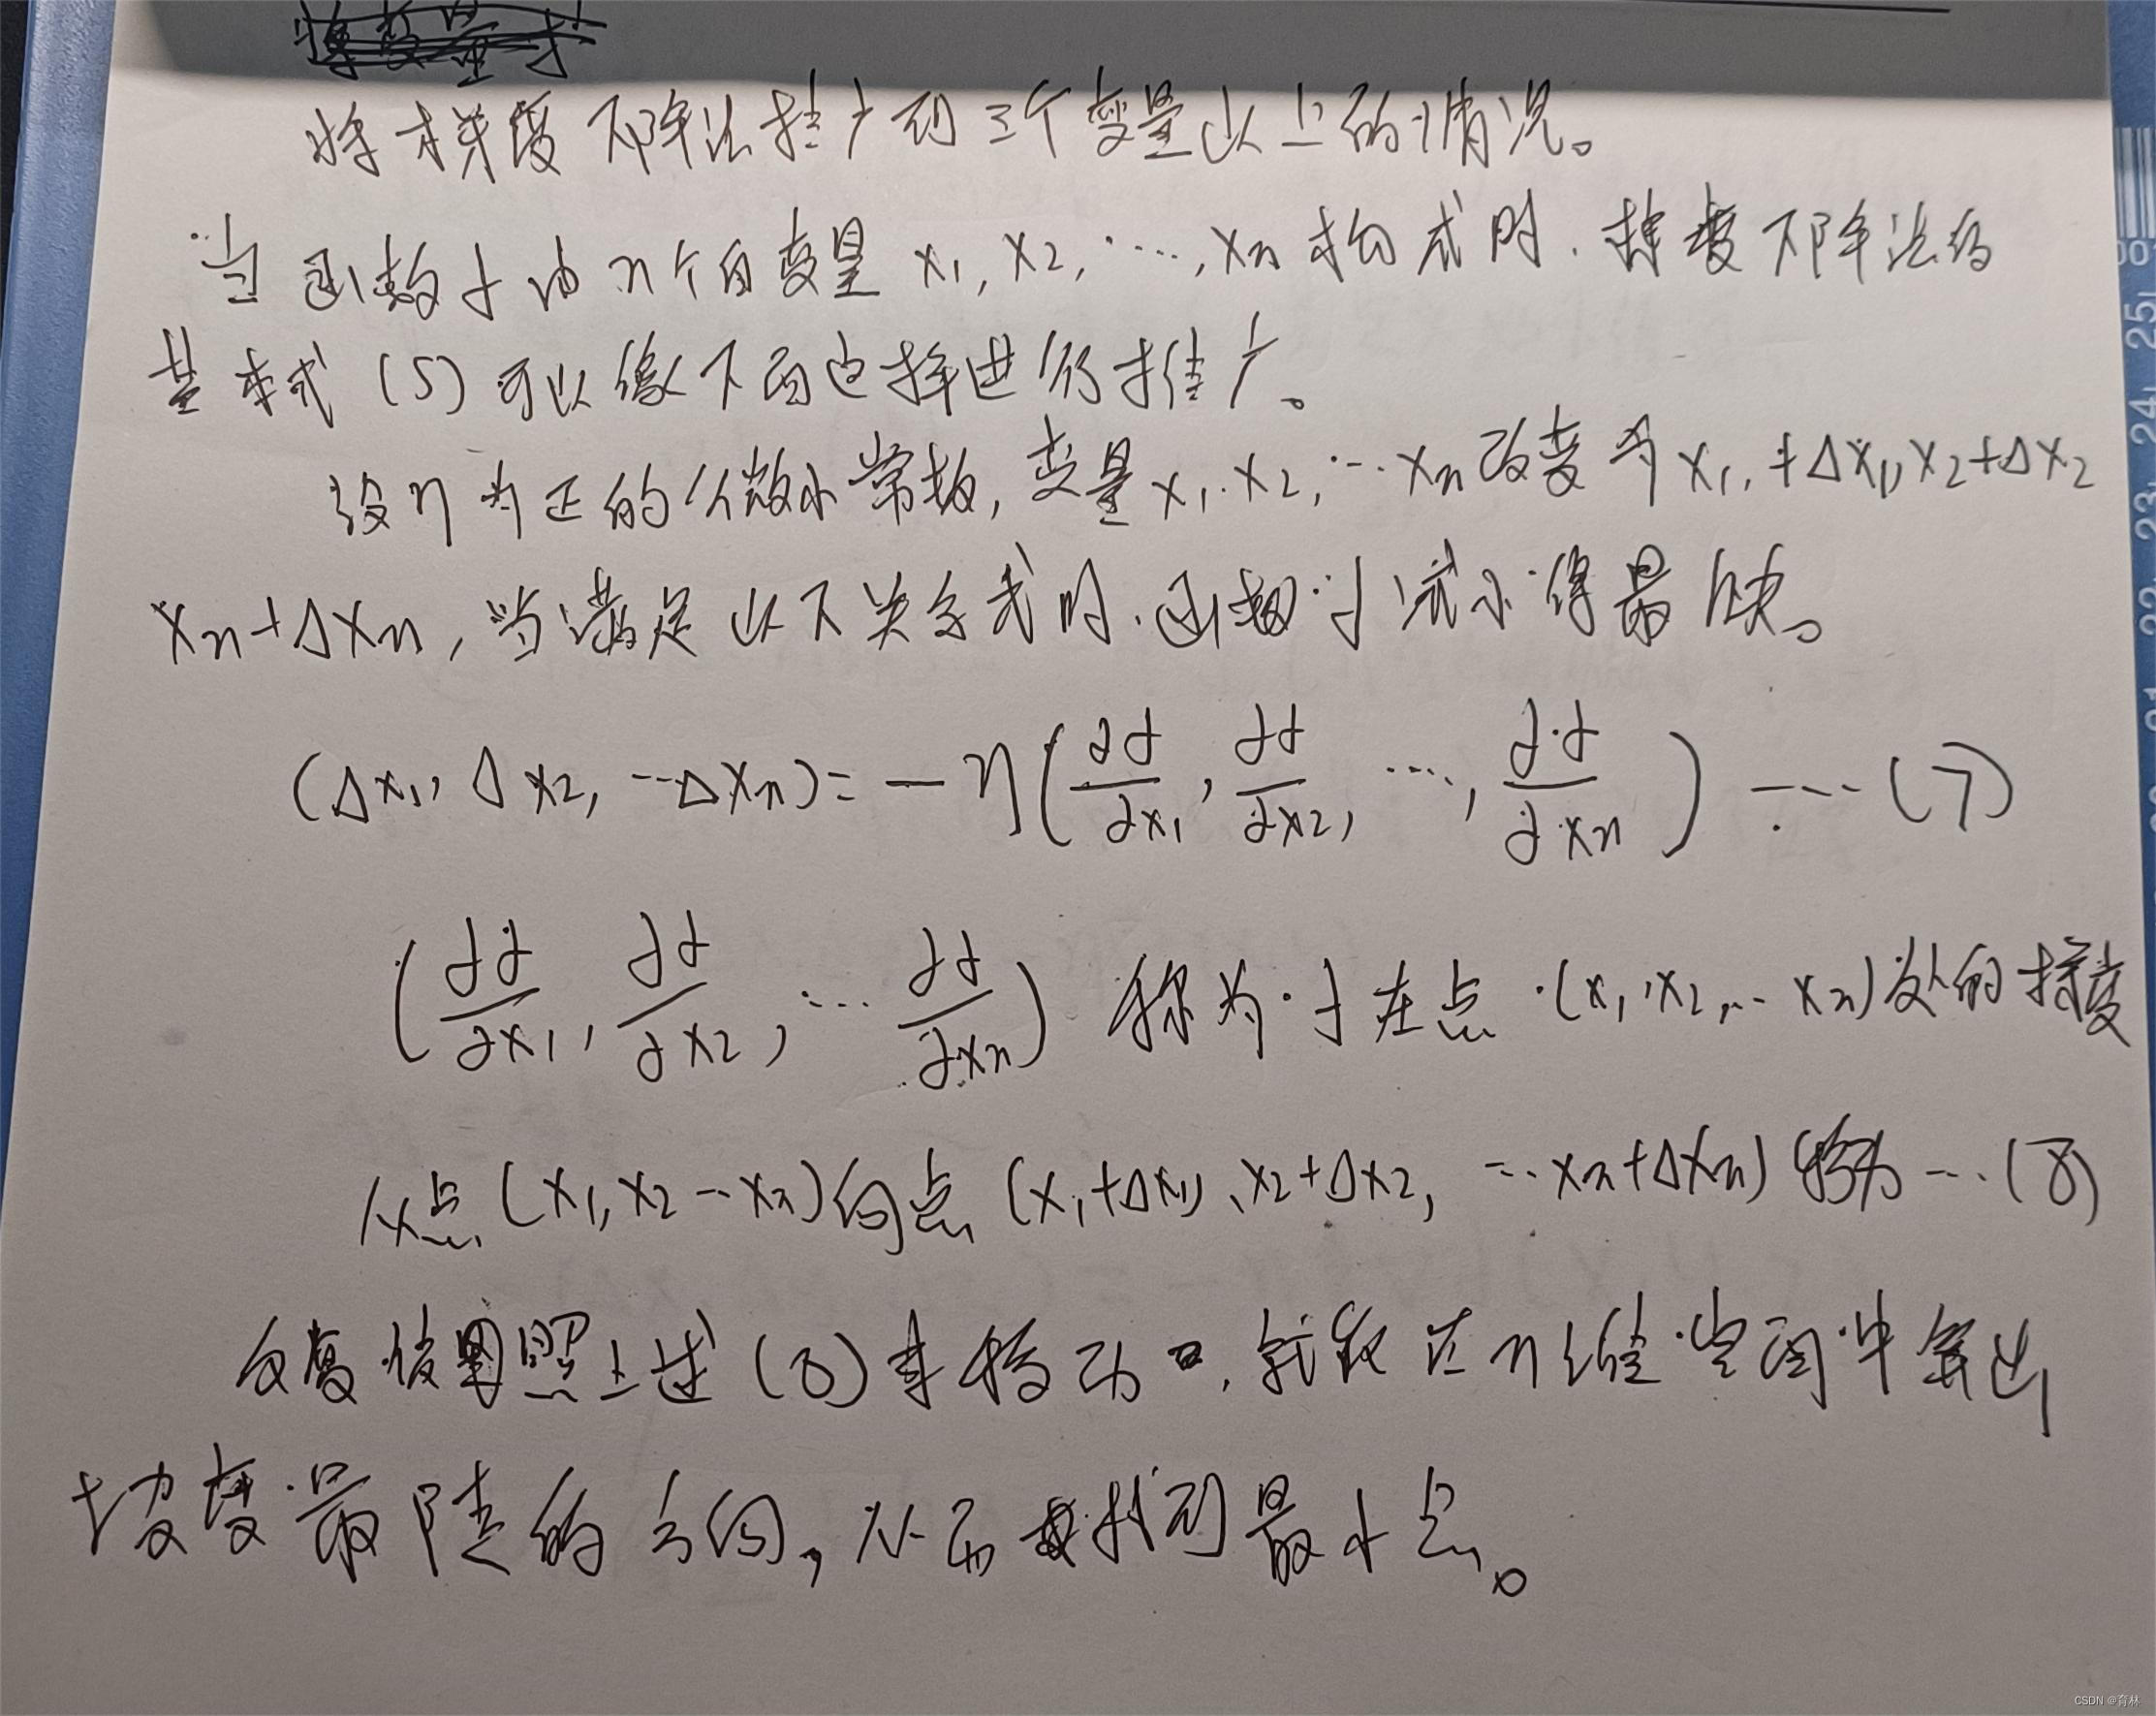 将梯度下降法推广到三个变量以上的情况。
当函数f由n个自变量 x₁, x₂, …, xₙ 构成时.梯度下降法的
基本式 (5) 可以像下面这样进行推广。
设η为正的微小常数, 变量 x₁, x₂, … xₙ 改变为 x₁, +Δx₁, x₂+Δx₂
xₙ+Δxₙ, 当满足以下关系式时.函数f减小得最快。
(Δx₁, Δx₂, …Δxₙ) = -η(∂f/∂x₁, ∂f/∂x₂, …, ∂f/∂xₙ) …(7)
(∂f/∂x₁, ∂f/∂x₂, … ∂f/∂xₙ) 称为f在点 (x₁, x₂, … xₙ)处的梯度
从点 (x₁, x₂ … xₙ)向点 (x₁+Δx₁, x₂+Δx₂, … xₙ+Δxₙ) 移动 … (8)
反复按照上述 (8) 来移动, 就能在n维空间中算出
坡度最陡的方向, 从而找到最小点。
25 24 23 22 21
CSDN @育林